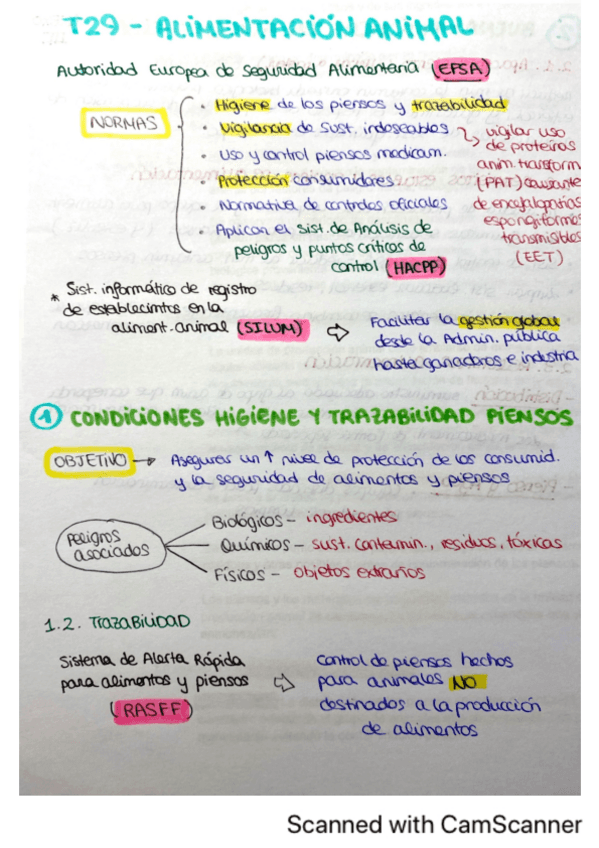 T29 - ALIMENTACIÓN ANIMAL
Autoridad Europea de Seguridad Alimentaria (EFSA)
NORMAS
· Higiene de los piensos y trazabilidad
· Vigilancia de sust. indeseables
· Uso y control piensos medicam.
· Protección consumidores
· Normativa de controles oficiales
· Aplican el sist. de Análisis de
peligros y puntos críticos de
control (HACPP)
vigilar uso
de proteínas
anim. transform
(PAT) causante
de encefalopatías
espongiformes
transmisibles
(EET)
* Sist. informático de registro
de establecimtos en la
aliment. animal (SILUM) ⇨
Facilitar la gestión global
desde la Admin. pública
hasta ganaderos e industria
① CONDICIONES HIGIENE Y TRAZABILIDAD PIENSOS
OBJETIVO → Asegurar un ↑ nivel de protección de los consumid.
y la seguridad de alimentos y piensos
Peligros
asociados
Biológicos - ingredientes
Químicos - sust. contamin., residuos, tóxicas
Físicos - objetos extraños
1.2. TRAZABILIDAD
Sistema de Alerta Rápida
para alimentos y piensos
(RASFF)
⇨ Control de piensos hechos
para animales NO
destinados a la producción
de alimentos
Scanned with CamScanner